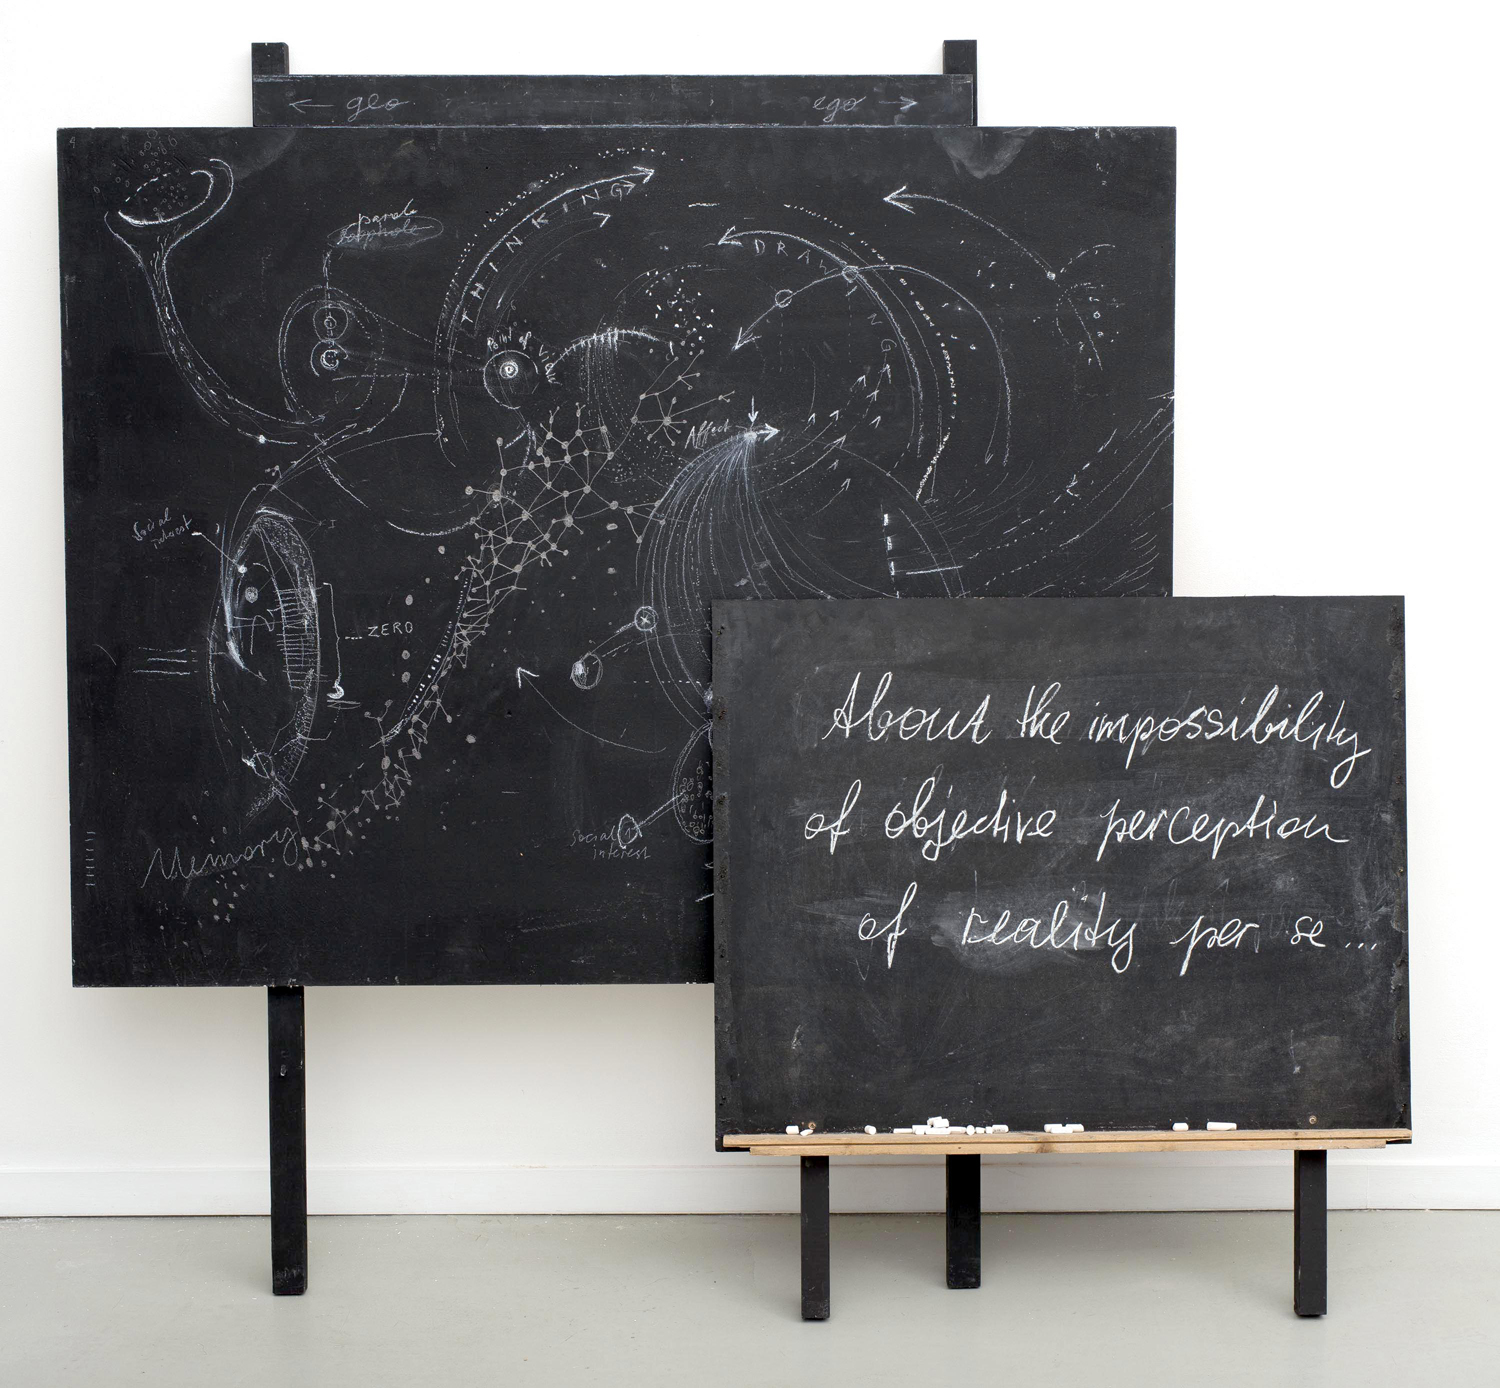 ← geo
ego →
parole
THINKING
DRAWING
Point of View
Affect
Social
interest
ZERO
Memory
Social
interest
About the impossibility
of objective perception
of reality per se...